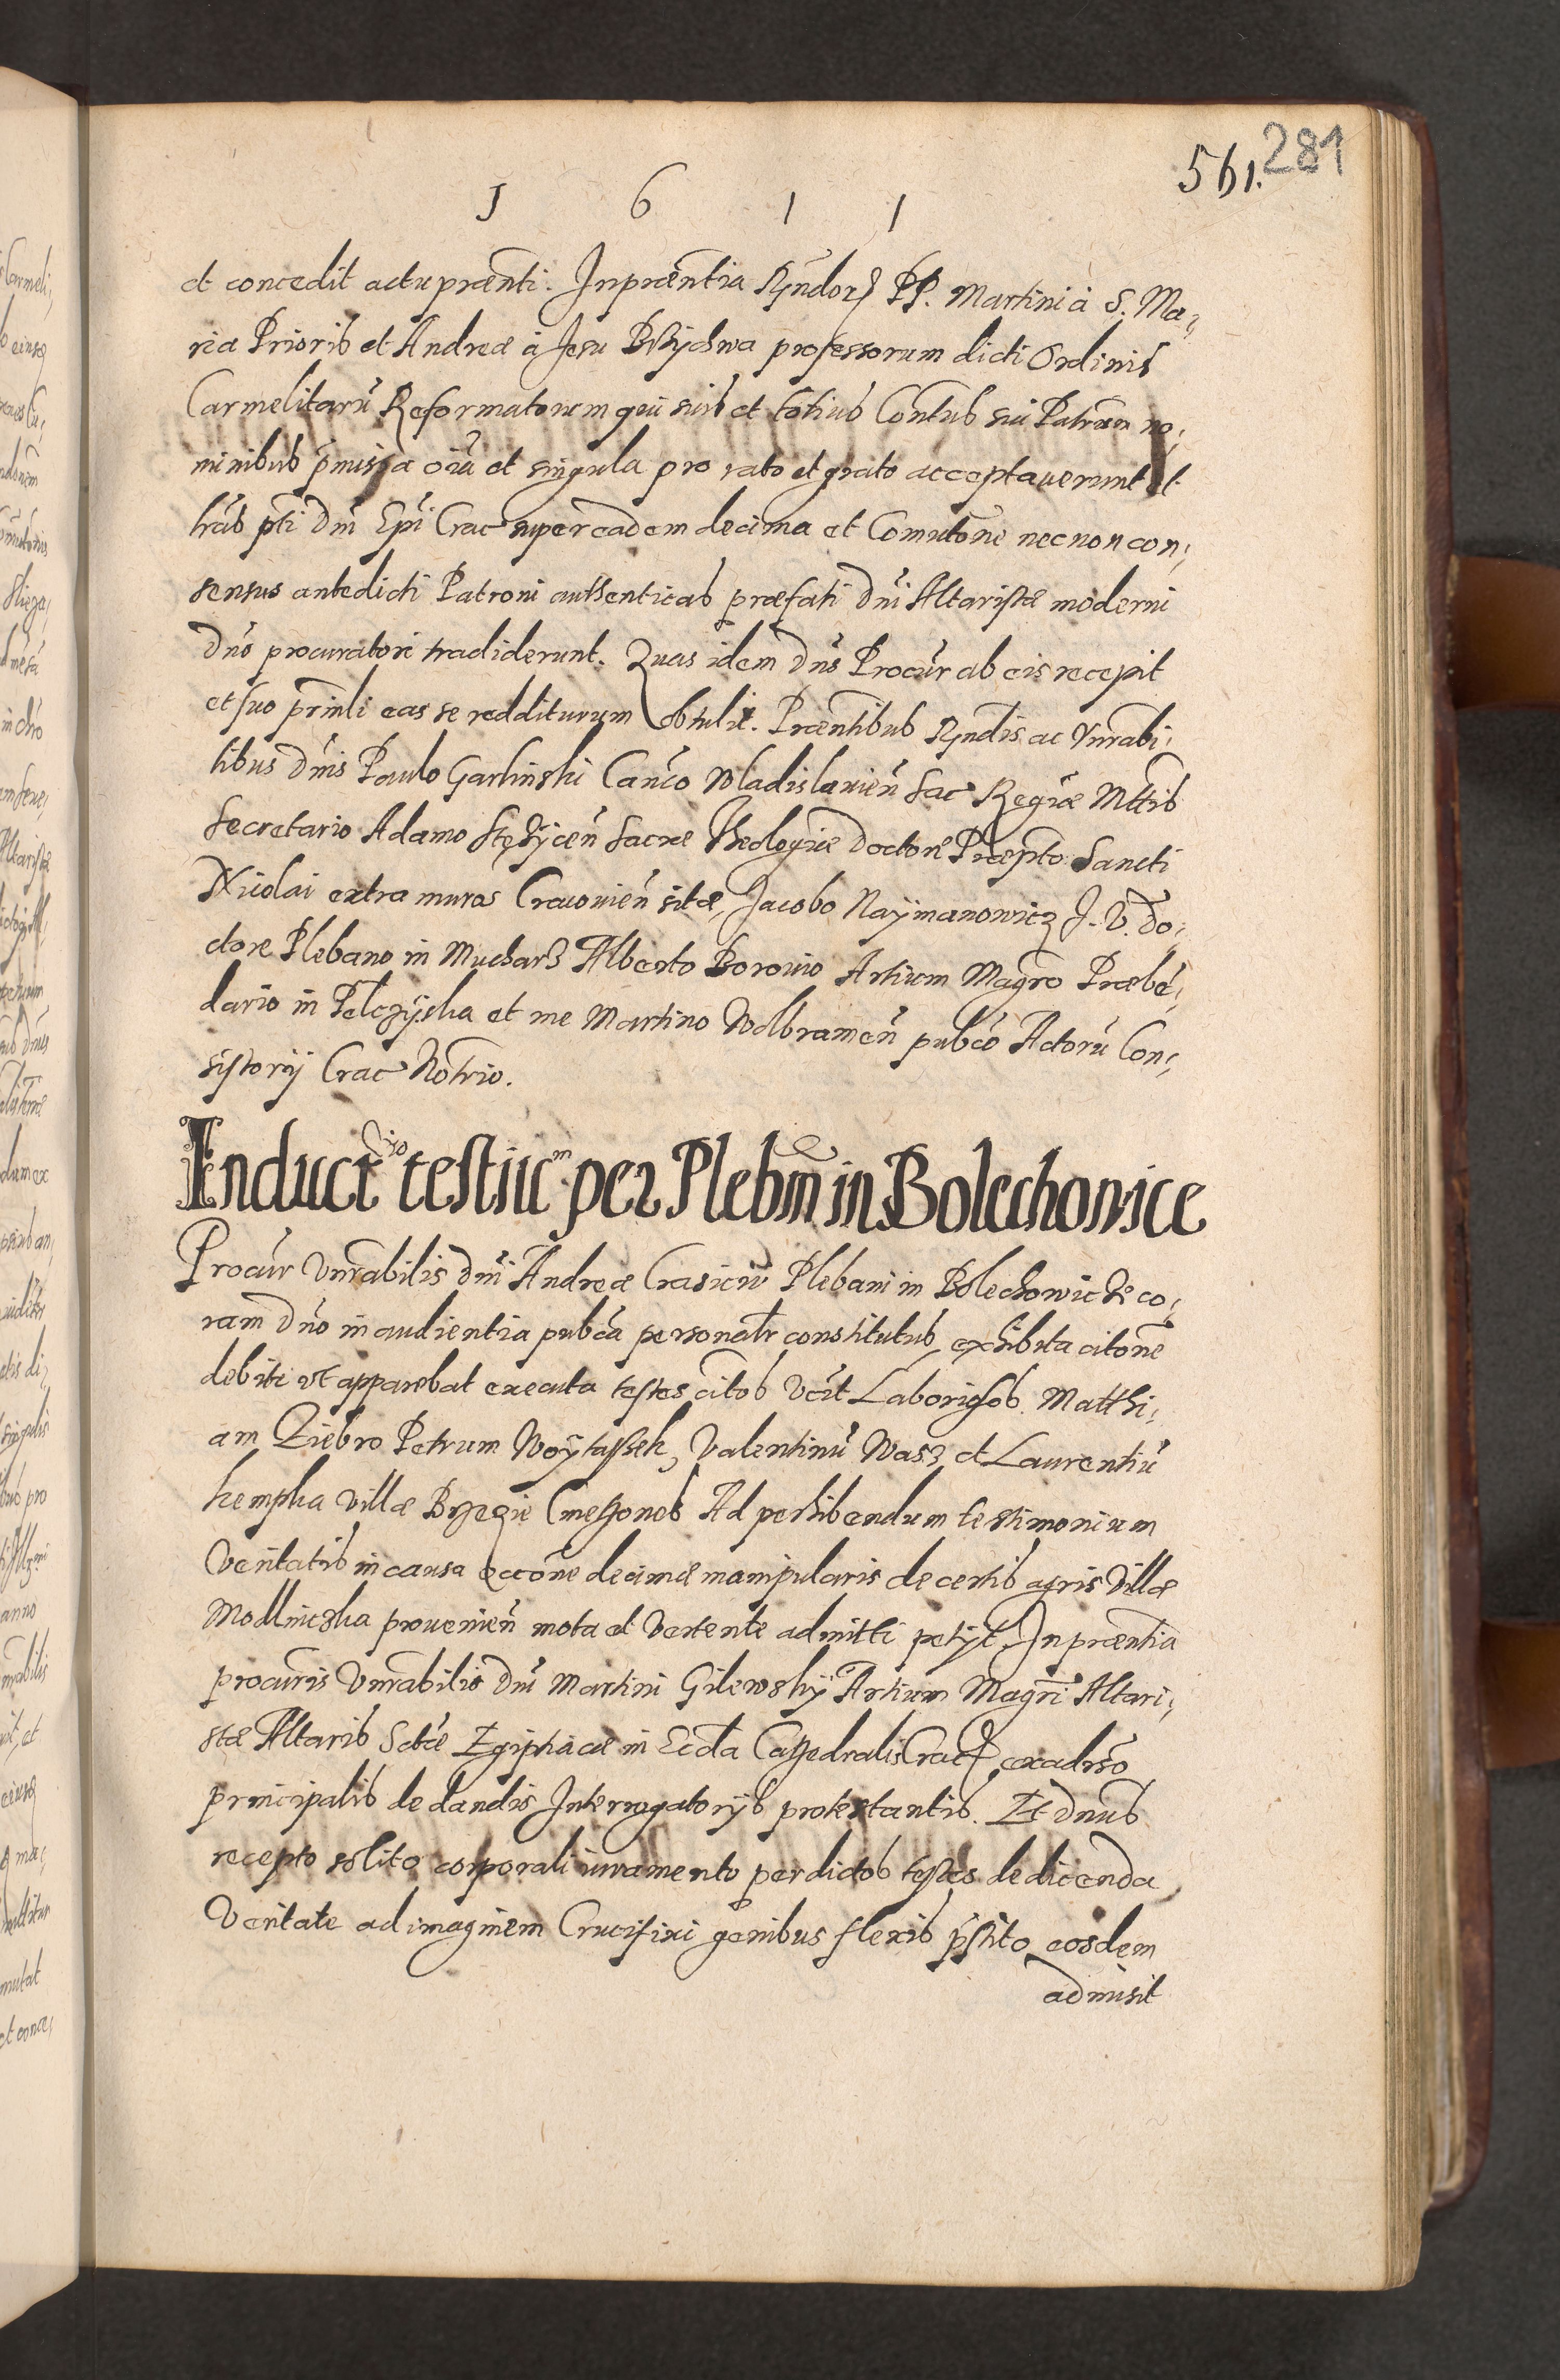 561. 281
1 6 1 1
et concedit actu præñti. In præntia Rndorz PP. Martini à S. Ma,
ria Prioris et Andreæ à Jesu Brzychwa professorum dicti Ordinis
Carmelitarũ Reformatorum qui suis et totius Contus sui Patrum no,
minibus pmissa oia et singula pro rato et grato acceptauerunt et
lras pti Dni Epi Crac super eadem decima et Comutone nec non con,
sensus antedicti Patroni authenticas præfati Dni Altaristæ moderni
Dno procuratori tradiderunt. Quas idem Dns Procur ab eis recepit
et suo prinli eas se redditurum obtulit. Præntibus Rndis ac Vnrabi,
libus Dnis Paulo Garlinski Canco Wladislauien Sac Regiæ Mttis
Secretario Adamo Stęzycen Sacræ Theologiæ Doctore Præpto Sancti
Nicolai extra muros Cracouien sitæ, Jacobo Naymanowicz J. V. Do,
ctore Plebano in Mucharz Alberto Borouio Artium Magro Præbe,
dario in Pelczyska et me Martino Wolbramen pubco Actorũ Con,
sistorij Crac Notrio.
Inductio testium per Plebm in Bolechowice
Procur Vnrabilis Dni Andreæ Crasicio Plebani in Bolechowicze co,
ram Dno in audientia pubca personalr constitutus, exhibita citone
debite vt apparebat executa testes citos Vcit Laboriosos Matthi,
am Ziebro Petrum Woytassek, Valentinũ Wass et Laurentiũ
kempka Villæ Brzezie Cmethones Ad perhibendum testimonium
Veritatis in causa rõne decimæ manipularis de certis agris Villæ
Modlniczka prouenien mota et Vertente admitti petijt. In præntia
procuris Vnrabilis Dni Martini Gilewsky Artium Magri Altari,
stæ Altaris Sctæ Egiptiacæ in Eccla Cathedralis Crac ex aduso
principalis de dandis Interrogatorijs protestantis. Et Dnus
recepto solito corporali iuramento per dictos testes de dicenda
Veritate ad imaginem Crucifixi genibus flexis pstito eosdem
admisit